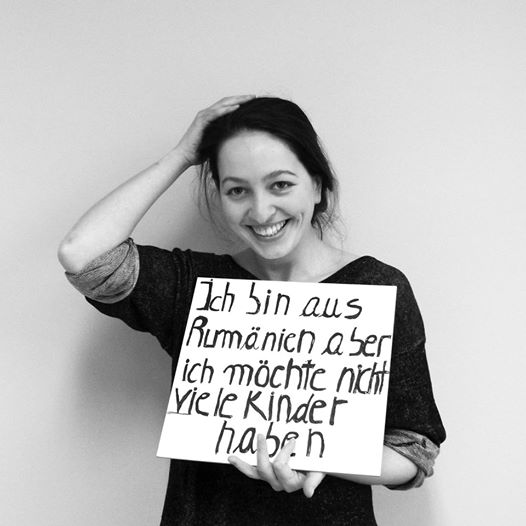 Ich bin aus
Rumänien aber
ich möchte nicht
viele Kinder
haben